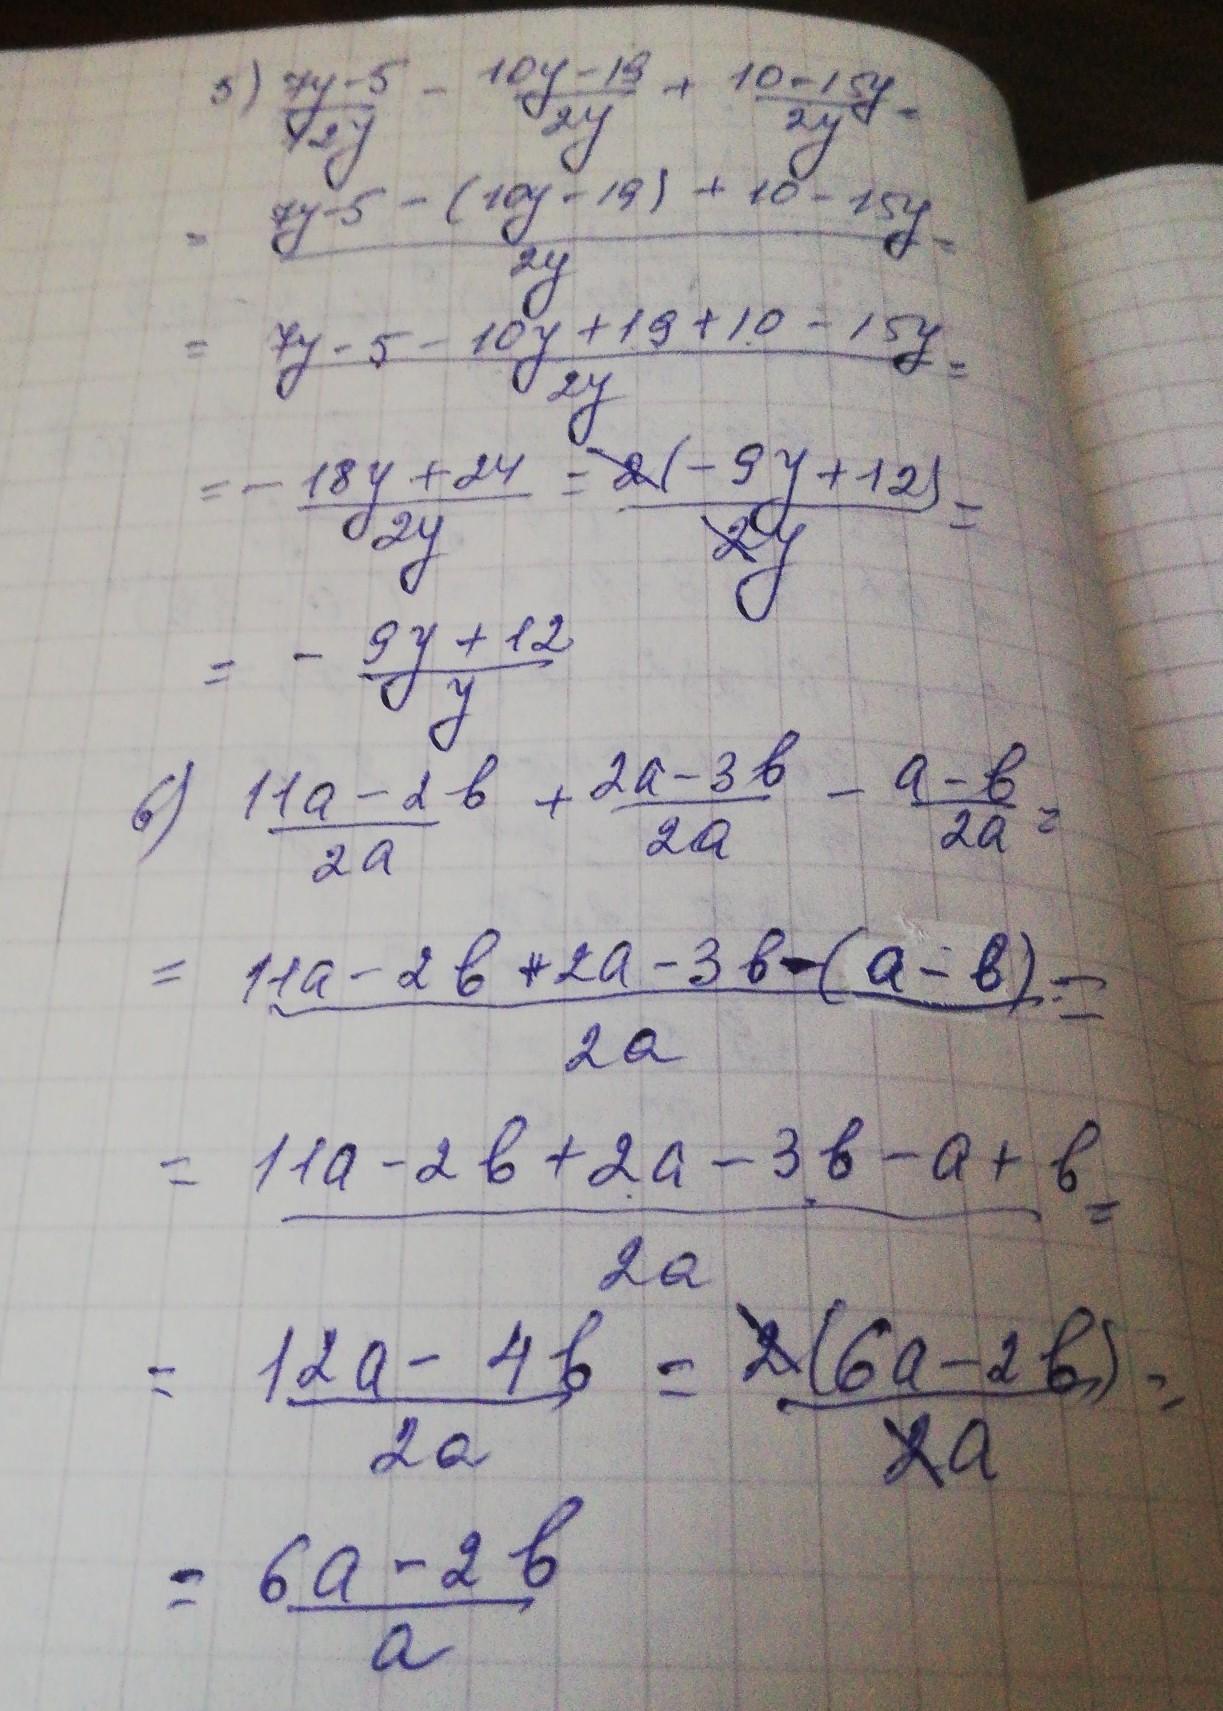 5) (7y-5)/2y - (10y-19)/2y + (10-15y)/2y =
= (7y-5-(10y-19)+10-15y)/2y =
= (7y-5-10y+19+10-15y)/2y =
= - (18y+24)/2y = 2(-9y+12)/2y =
= - (9y+12)/y
6) (11a-2b)/2a + (2a-3b)/2a - (a-b)/2a =
= (11a-2b+2a-3b-(a-b))/2a =
= (11a-2b+2a-3b-a+b)/2a =
= (12a-4b)/2a = 2(6a-2b)/2a =
= (6a-2b)/a